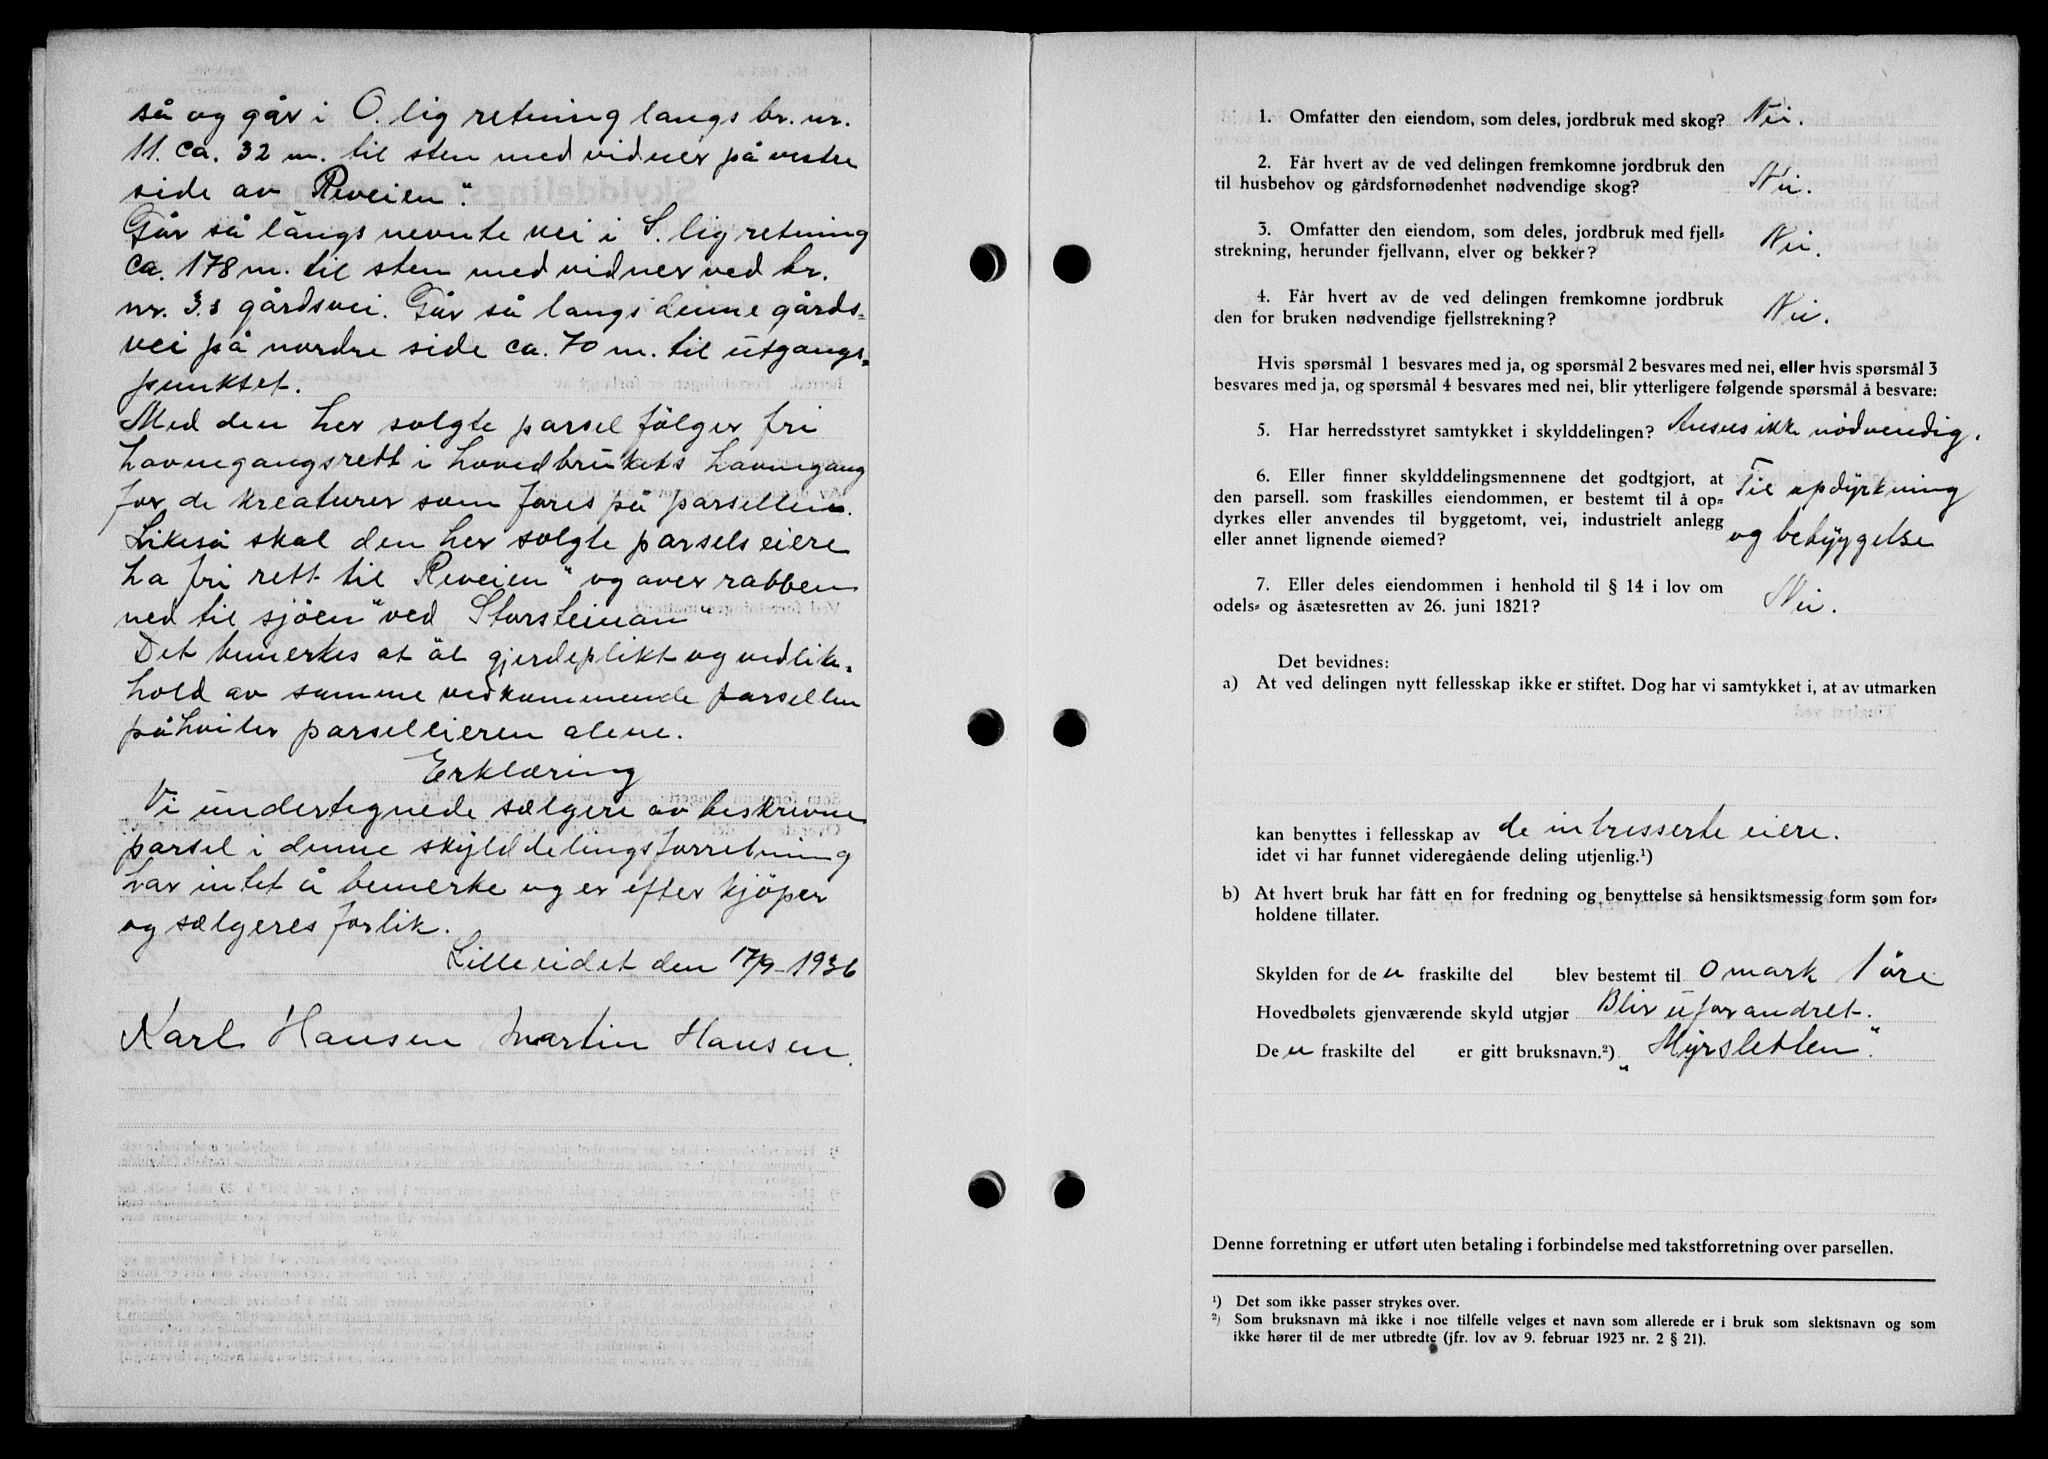 så og går i O. lig retning langs br. nr.
11. ca. 32 m. til sten med vidner på vestre
side av "Reveien".
Går så langs nevnte vei i S. lig retning
ca. 178 m. til sten med vidner ved br.
nr. 3.s gårdsvei. Går så langs denne gårds=
vei på nordre side ca. 70 m. til utgangs=
punktet.
Med den her solgte parsel følger fri
havnegangsrett i hovedbrukets havnegang
for de kreaturer som fores på parsellen.
Likeså skal den her solgte parsels eiere
ha fri rett til "Reveien" og over rabben
ned til sjöen "ved Storsteinan"
Det bemerkes at al gjerdeplikt og vedlik=
hold av samme vedkommende parsellen
påhviler parseleieren alene.
Erklæring
Vi undertegnede sælgere av beskrivne
parsel i denne skylddelingsforretning
har intet å bemerke og er efter kjöper
og sælgeres forlik.
Lilleeidet den 17/9-1936
Karl Hansen Martin Hansen.
1. Omfatter den eiendom, som deles, jordbruk med skog? Nei.
2. Får hvert av de ved delingen fremkomne jordbruk den
til husbehov og gårdsfornødenhet nødvendige skog? Nei.
3. Omfatter den eiendom, som deles, jordbruk med fjell=
strekning, herunder fjellvann, elver og bekker? Nei.
4. Får hvert av de ved delingen fremkomne jordbruk
den for bruken nødvendige fjellstrekning? Nei.
Hvis spørsmål 1 besvares med ja, og spørsmål 2 besvares med nei, eller hvis spørsmål 3
besvares med ja, og spørsmål 4 besvares med nei, blir ytterligere følgende spørsmål å besvare:
5. Har herredsstyret samtykket i skylddelingen? Anses ikke nödvendig.
6. Eller finner skylddelingsmennene det godtgjort, at
den parsell. som fraskilles eiendommen, er bestemt til å op= Til opdyrkning
dyrkes eller anvendes til byggetomt, vei, industrielt anlegg
eller annet lignende øiemed? og bebyggelse
7. Eller deles eiendommen i henhold til § 14 i lov om
odels= og åsætesretten av 26. juni 1821? Nei.
Det bevidnes:
a) At ved delingen nytt fellesskap ikke er stiftet. Dog har vi samtykket i, at av utmarken
kan benyttes i fellesskap av de intresserte eiere.
idet vi har funnet videregående deling utjenlig.¹)
b) At hvert bruk har fått en for fredning og benyttelse så hensiktsmessig form som for=
holdene tillater.
Skylden for de n fraskilte del blev bestemt til 0 mark 1 öre
Hovedbølets gjenværende skyld utgjør Blir uforandret.
De n fraskilte del er gitt bruksnavn.²) "Myrsletten".
Denne forretning er utført uten betaling i forbindelse med takstforretning over parsellen.
¹) Det som ikke passer strykes over.
²) Som bruksnavn må ikke i noe tilfelle velges et navn som allerede er i bruk som slektsnavn og som
ikke hører til de mer utbredte (jfr. lov av 9. februar 1923 nr. 2 § 21).